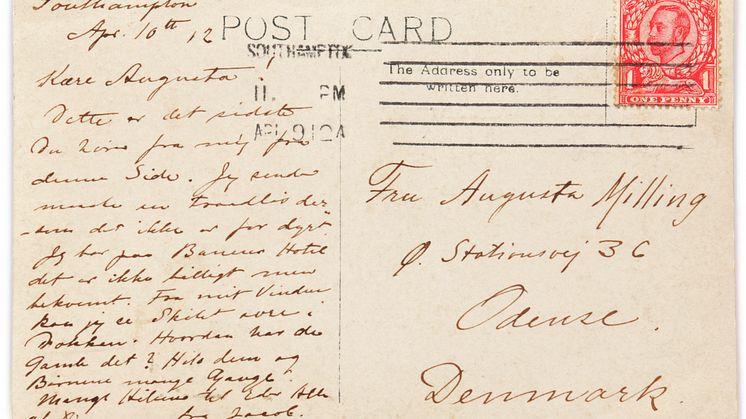 Southampton
Apr. 10th 12
Kære Augusta!
Dette er det sidste
Du hører fra mig fra
denne Side. Jeg sender
maaske en Traadløs der-
som det ikke er for dyrt
Jeg bor paa Hotel
det er ikke billigt men
bekvemt. Fra mit Vindue
kan jeg se Skibet i
Dokken. Hvordan har de
Gamle det? Hils dem og
Børnene mange Gange
Mange Hilsner til Eder Alle
fra Jacob.
POST CARD
The Address only to be
written here.
SOUTHAMPTON
11 PM
AP 9 12 A
ONE PENNY
1 1
Fru Augusta Milling
Ø. Stationsvej 36
Odense.
Denmark.